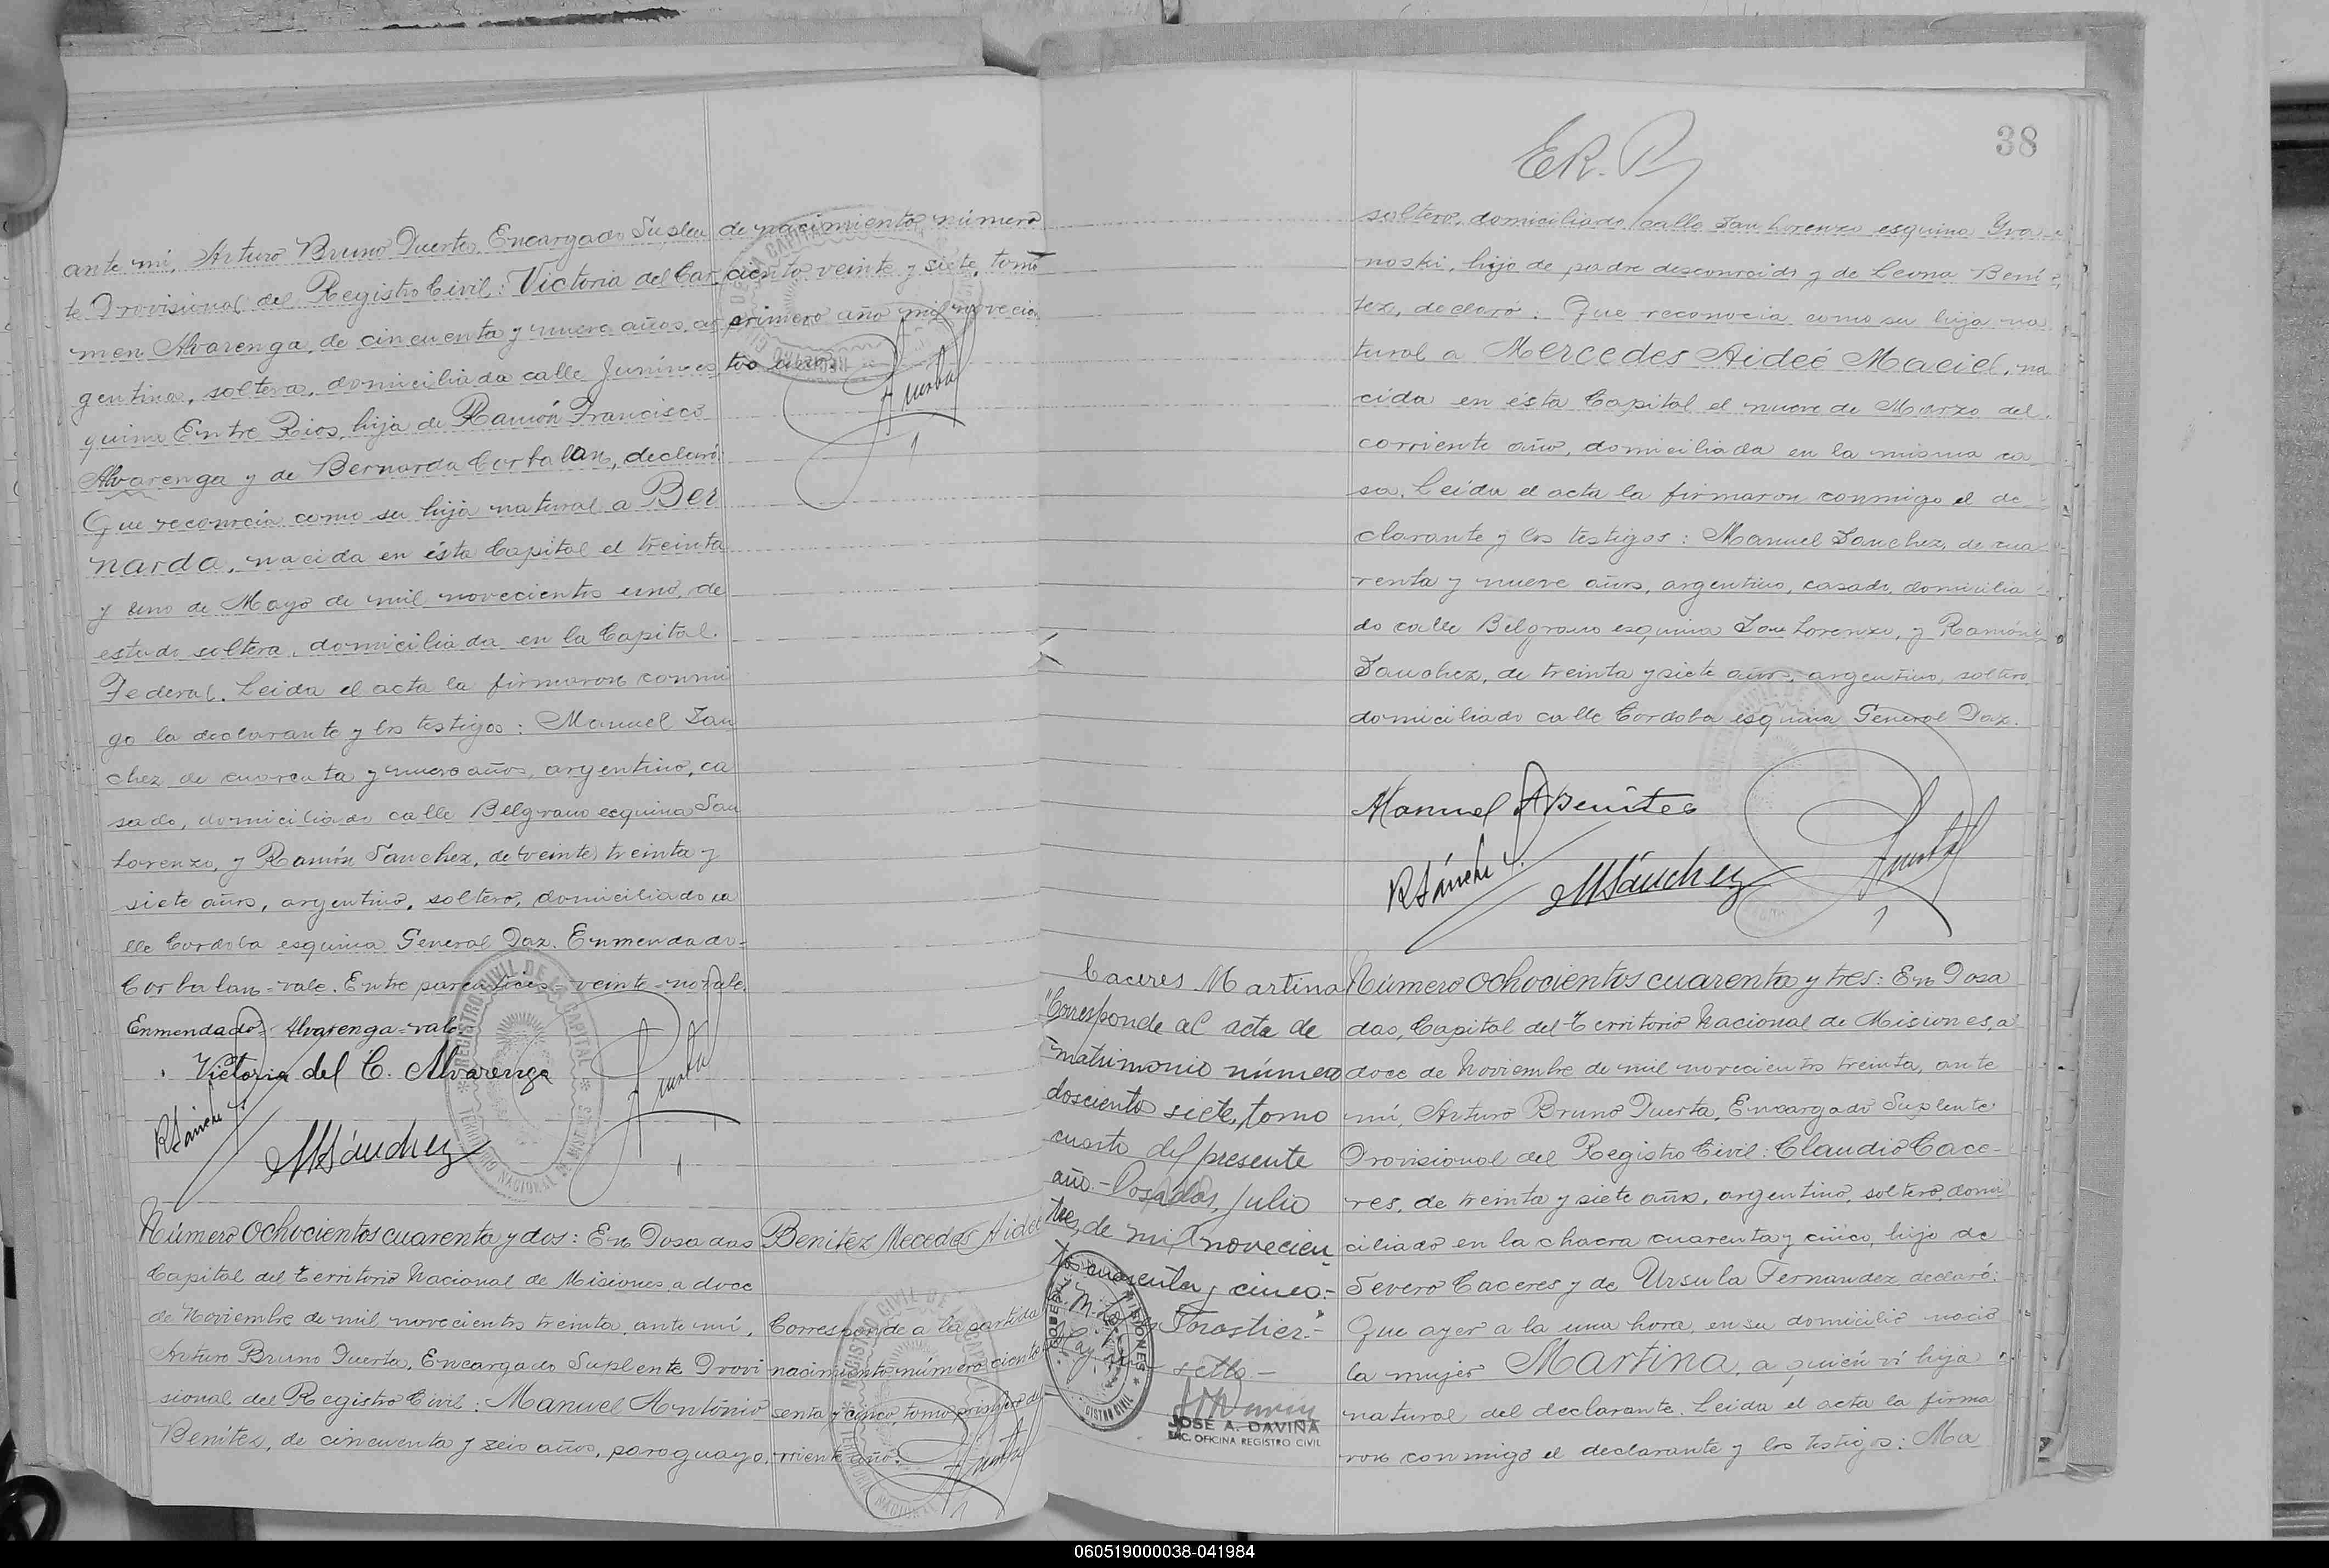 ante mi, Arturo Bruno Duerta, Encargado Suplen
te Provisional del Registro Civil: Victoria del Car
men Alvarenga, de cincuenta y nueve años, ar
gentina, soltera, domiciliada calle Junín es
quina Entre Rios, hija de Ramón Francisco
Alvarenga y de Bernarda Corbalan, declaró:
Que reconocia como su hija natural a Ber
narda, nacida en ésta Capital el treinta
y uno de Mayo de mil novecientos uno, de
estado soltera, domiciliada en la Capital
Federal. Leida el acta la firmaron conmi
go la declarante y los testigos: Manuel San
chez, de cuarenta y nueve años, argentino, ca
sado, domiciliado calle Belgrano esquina San
Lorenzo, y Ramón Sanchez, de (veinte) treinta y
siete años, argentino, soltero, domiciliado ca
lle Cordoba esquina General Paz. Enmendado=
Corbalan=vale. Entre parenticis=veinte=no vale.
Enmendado= Alvarenga=vale
Victoria del C. Alvarenga
RSánchez
MSánchez
de nacimiento número
ciento veinte y siete, tomo
primero año mil novecien
tos uno.
REGISTRO CIVIL DE LA CAPITAL
TERRITORIO NACIONAL DE MISIONES
Número Ochocientos cuarenta y dos: En Posadas
Capital del Territorio Nacional de Misiones, a doce
de Noviembre de mil novecientos treinta, ante mi,
Arturo Bruno Duerta, Encargado Suplente Provi
sional del Registro Civil: Manuel Antonio
Benites, de cincuenta y seis años, paraguayo,
Benitez Mecedes Aideé
Corresponde a la partida
nacimiento número ciento
senta y cinco tomo primero del
rriente año.
38
ER. P
soltero, domiciliado calle San Lorenzo esquina Yva
noski, hijo de padre desconocido y de Leona Bení
tez, declaró: Que reconocia como su hija na
tural a Mercedes Aideé Maciel, na
cida en ésta Capital el nueve de Marzo del
corriente año, domiciliada en la misma ca
sa. Leida el acta la firmaron conmigo el de
clarante y los testigos: Manuel Sanchez, de cua
renta y nueve años, argentino, casado, domicilia
do calle Belgrano esquina San Lorenzo, y Ramón
Sanchez, de treinta y siete años, argentino, soltero,
domiciliado calle Cordoba esquina General Paz.
Manuel A Benites
RSánchez
MSánchez
Caceres Martina
"Corresponde al acta de
matrimonio número
doscientos siete, tomo
cuarto del presente
año.- Posadas, Julio
tres, de mil novecien
tos cuarenta y cinco.-
Forastier.-"
sello.-
JOSÉ A. DAVIÑA
ENC. OFICINA REGISTRO CIVIL
Número Ochocientos cuarenta y tres: En Posa
das, Capital del Territorio Nacional de Misiones, a
doce de Noviembre de mil novecientos treinta, ante
mí, Arturo Bruno Duerta, Encargado Suplente
Provisional del Registro Civil: Claudio Cace-
res, de treinta y siete años, argentino, soltero, domi
ciliado en la chacra cuarenta y cinco, hijo de
Severo Caceres y de Ursula Fernandez, declaró:
Que ayer a la una hora, en su domicilio nació
la mujer Martina, a quien ví hija
natural del declarante. Leida el acta la firma
ron conmigo el declarante y los testigos: Ma
060519000038-041984